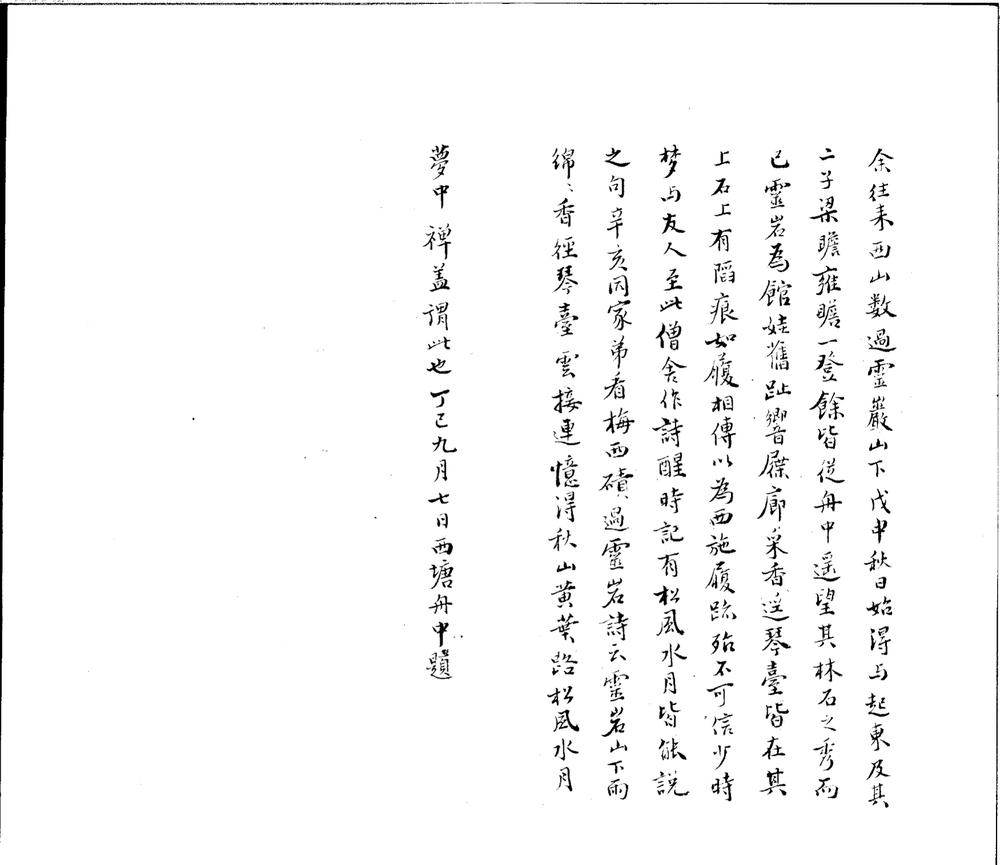 余往来西山数過靈巖山下戊申秋日始得与起東及其
二子梁瞻雍瞻一登餘皆從舟中遥望其林石之秀而
已靈岩為館娃舊趾響屧廊采香逕琴臺皆在其
上石上有陷痕如履相傳以為西施履跡殆不可信少時
梦与友人至此僧舍作詩醒時記有松風水月皆能説
之句辛亥同家弟看梅西磧過靈岩詩云靈岩山下雨
綿〻香徑琴臺雲接連憶得秋山黄葉路松風水月
夢中禅盖謂此也丁巳九月七日西塘舟中題